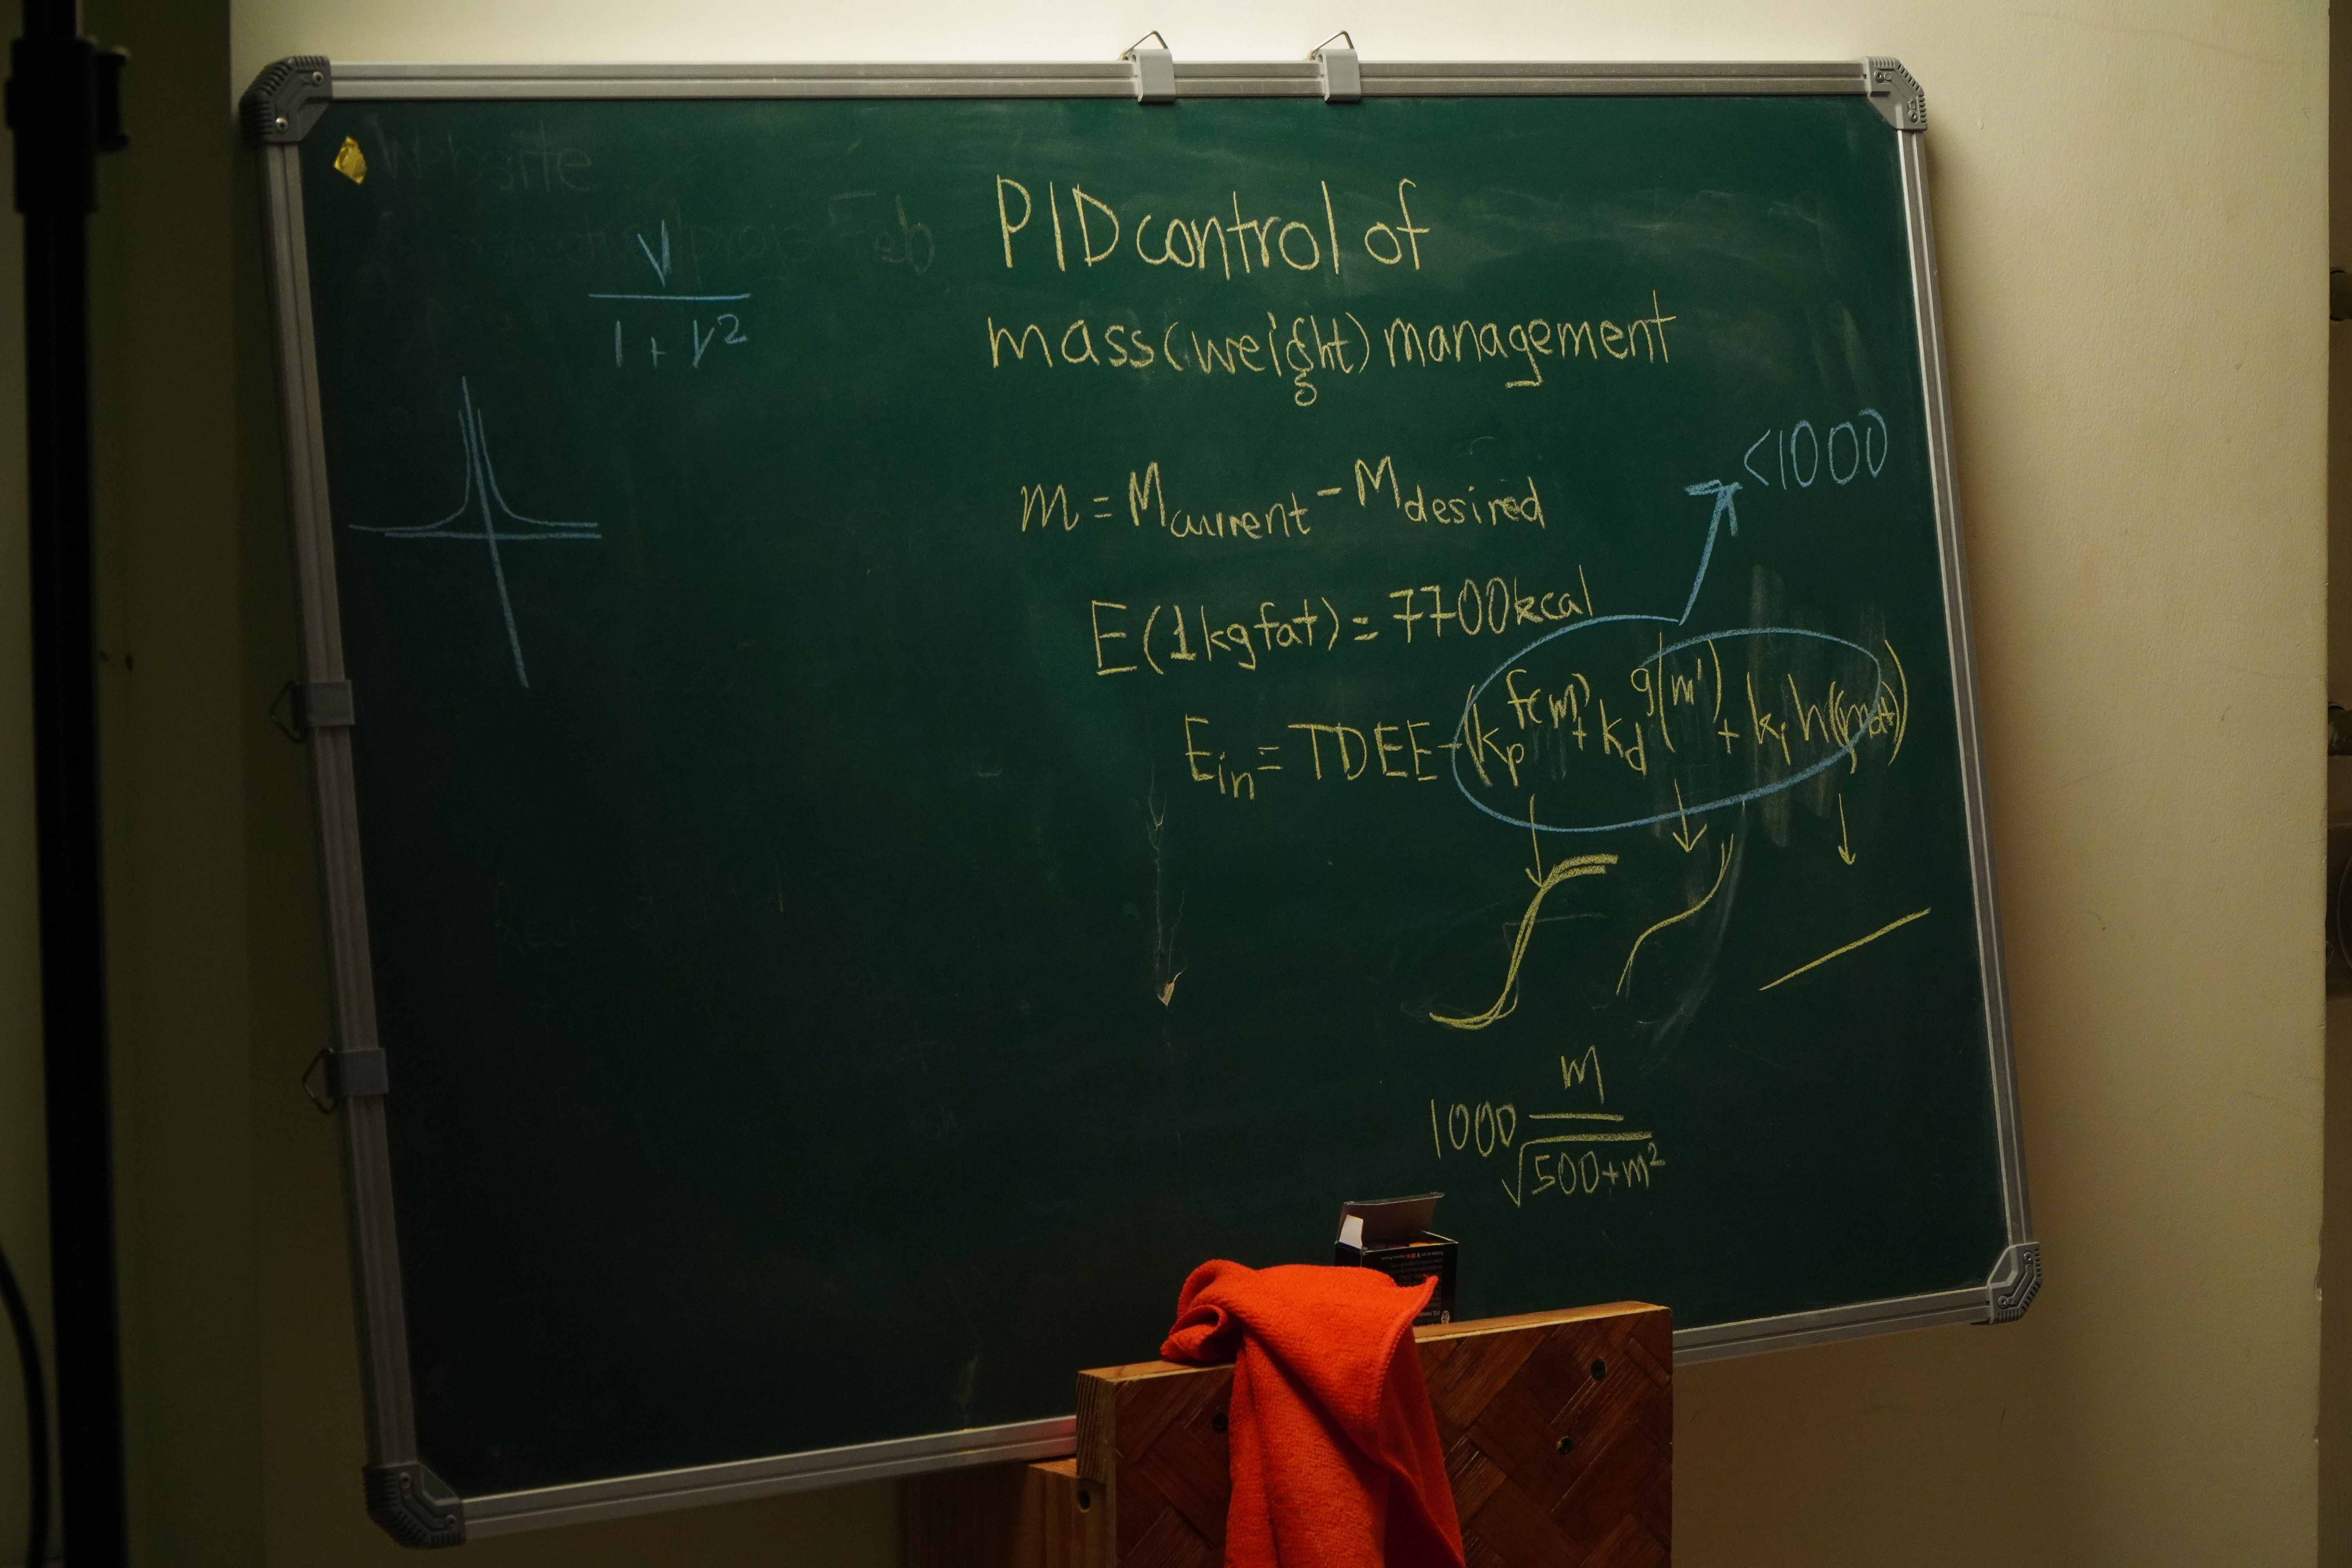 Website
Feb
V
1 + V²
PID control of
mass (weight) management
m = M_current - M_desired
<1000
E(1kg fat) = 7700kcal
E_in = TDEE - (k_p f(m) + k_d g(m') + k_i h(∫m dt))
1000 m / √500+m²